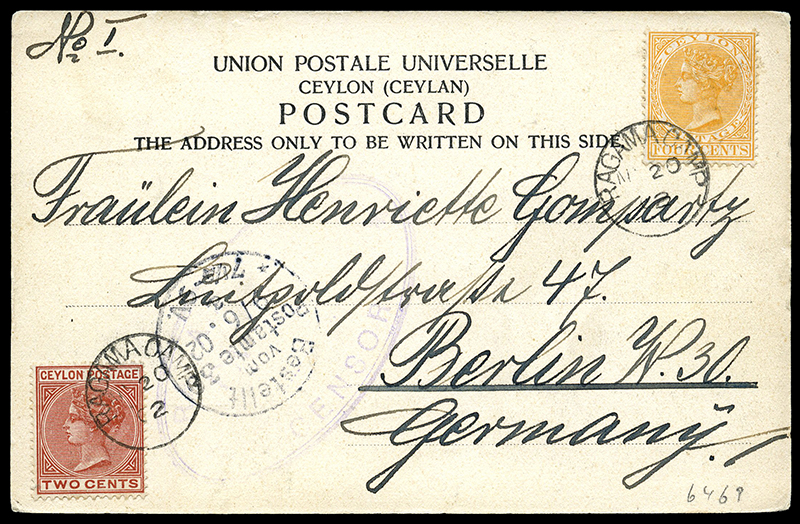 No. I.
CEYLON
POSTAGE
FOUR CENTS
UNION POSTALE UNIVERSELLE
CEYLON (CEYLAN)
POSTCARD
THE ADDRESS ONLY TO BE WRITTEN ON THIS SIDE
RAGAMA CAMP
20
2
Fräulein Henriette Gompartz
Luitpoldstraße 47.
Berlin W. 30.
Germany.
Bestellt
vom
Postamte
CENSOR
RAGAMA CAMP
20
2
CEYLON POSTAGE
TWO CENTS
6469